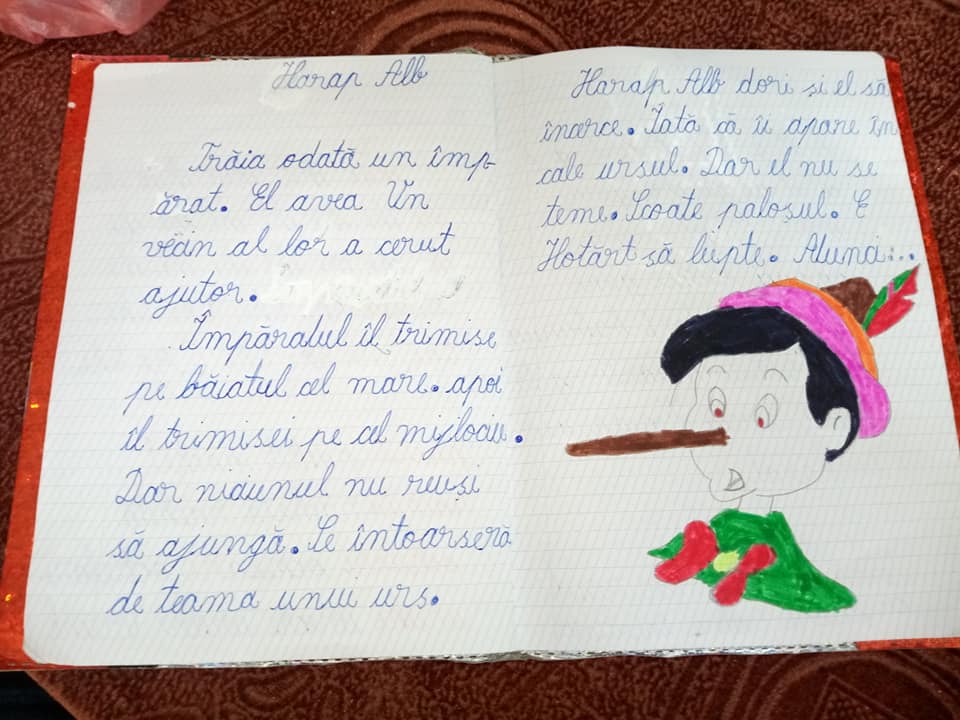 Harap Alb
Trăia odată un împ-
ărat. El avea Un
vecin al lor a cerut
ajutor.
Împăratul îl trimise
pe băiatul cel mare. apoi
îl trimisei pe cel mijlociu.
Dar niciunul nu reuși
să ajungă. Se întoarseră
de teama unui urs.
Harap Alb dori și el să
încerce. Iată că îi apare în
cale ursul. Dar el nu se
teme. Scoate paloșul. E
Hotărt să lupte. Atunci...